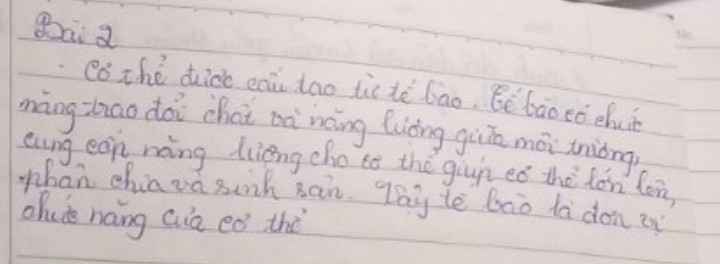 Bài 2
Cơ thể được cấu tạo từ tế bào. Tế bào có chức
năng trao đổi chất và năng lượng giữa môi trường,
cung cấp năng lượng cho cơ thể giúp cơ thể lớn lên,
phân chia và sinh sản. Vậy tế bào là đơn vị
chức năng của cơ thể